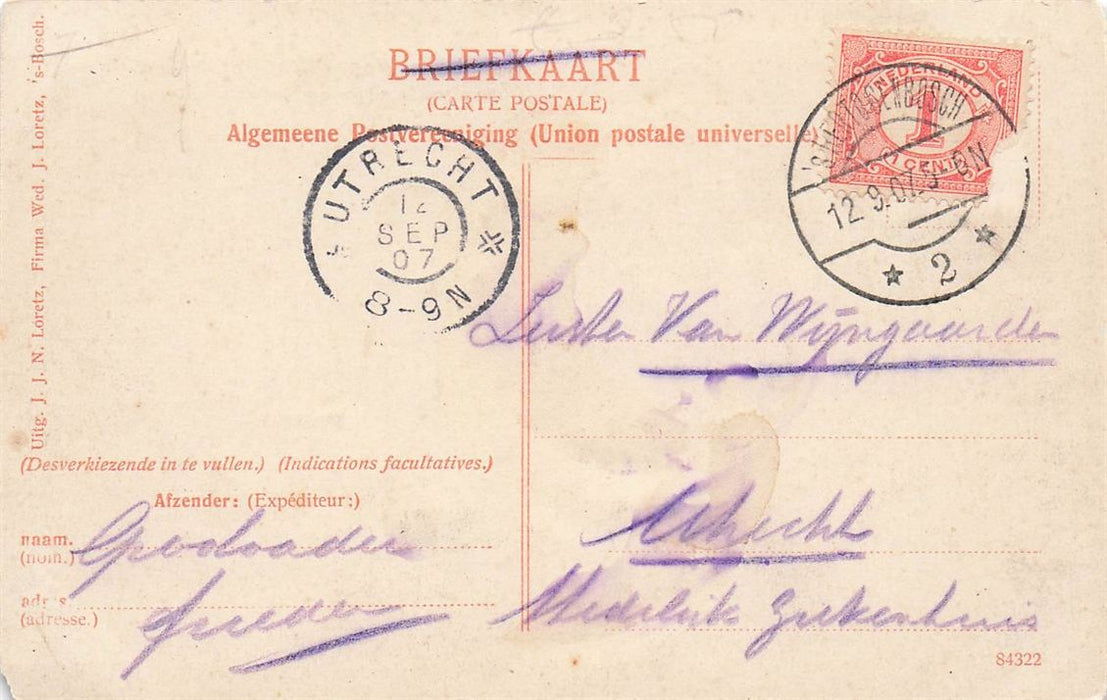 BRIEFKAART
(CARTE POSTALE)
Algemeene Postvereeniging (Union postale universelle)
NEDERLAND
1
CENT
'S-HERTOGENBOSCH
12.9.07.5-6N
2
UTRECHT
12
SEP
07
8-9N
Uitg. J. J. N. Loretz, Firma Wed. J. Loretz, 's-Bosch.
Van Wijngaarden
Utrecht
Ziekenhuis
(Desverkiezende in te vullen.) (Indications facultatives.)
Afzender: (Expéditeur:)
naam.
(nom.)
adres
(adresse.)
84322